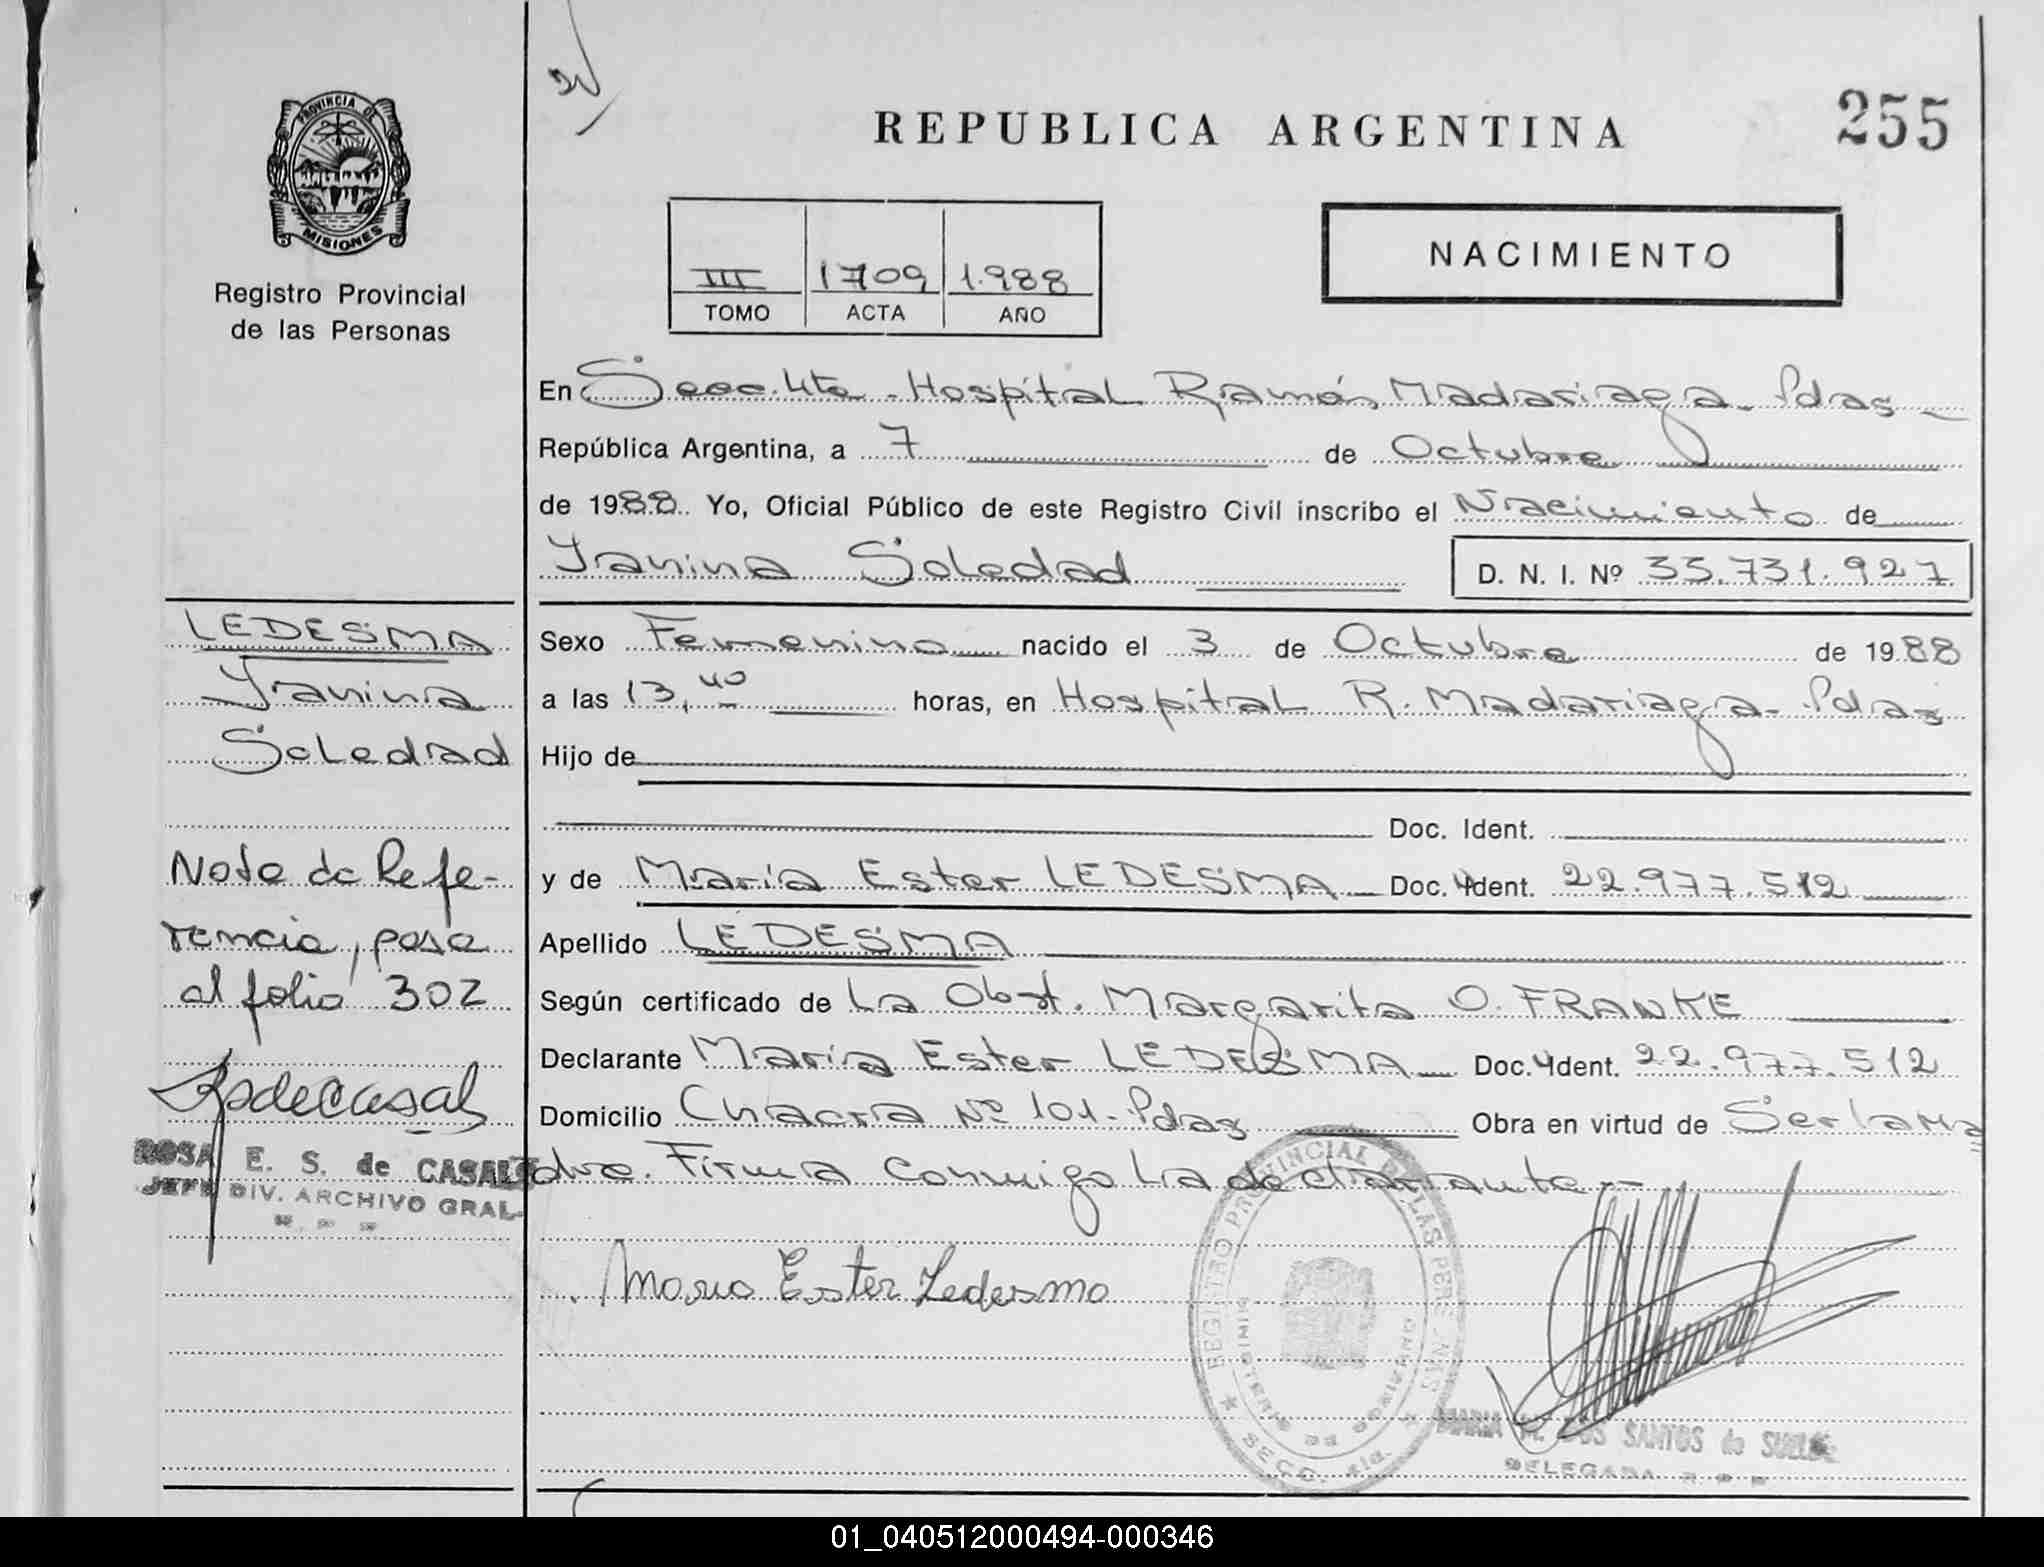 255
PROVINCIA DE
MISIONES
REPUBLICA ARGENTINA
NACIMIENTO
III 1709 1.988
TOMO ACTA AÑO
Registro Provincial
de las Personas
En Secc. 4ta - Hospital Ramón Madariaga - Pdas
República Argentina, a 7 de Octubre
de 1988. Yo, Oficial Público de este Registro Civil inscribo el Nacimiento de
Yanina Soledad
D. N. I. Nº 33.731.927
LEDESMA
Yanina
Soledad
Sexo Femenino nacido el 3 de Octubre de 1988
a las 13,40 horas, en Hospital R. Madariaga - Pdas
Hijo de
Doc. Ident.
y de María Ester LEDESMA Doc. Ident. 22.977.512
Apellido LEDESMA
Según certificado de La Obst. Margarita O. FRANKE
Declarante María Ester LEDESMA Doc. Ident. 22.977.512
Domicilio Chacra Nº 101 - Pdas Obra en virtud de Ser la Ma
dre. Firma Conmigo La declarante -
Nota de Refe-
rencia, pasa
al folio 302
Rsdecasal
ROSA E. S. de CASALS
JEFE DIV. ARCHIVO GRAL.
Maria Ester Ledesma
REGISTRO PROVINCIAL DE LAS PERSONAS
SECC. 4ta.
MARIA M. DOS SANTOS de
DELEGADA R. P. P.
01_040512000494-000346